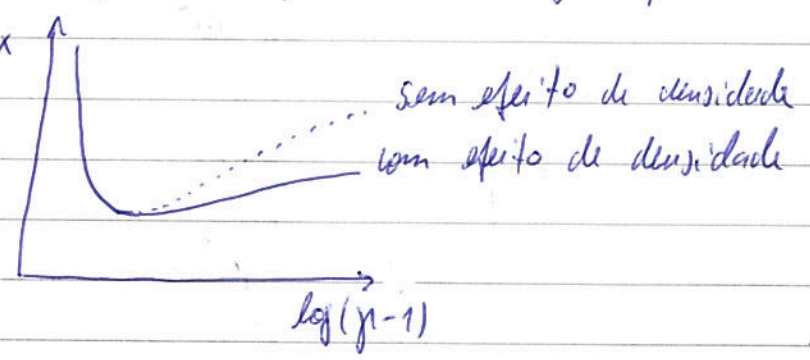 x
sem efeito de densidade
com efeito de densidade
log(γ-1)